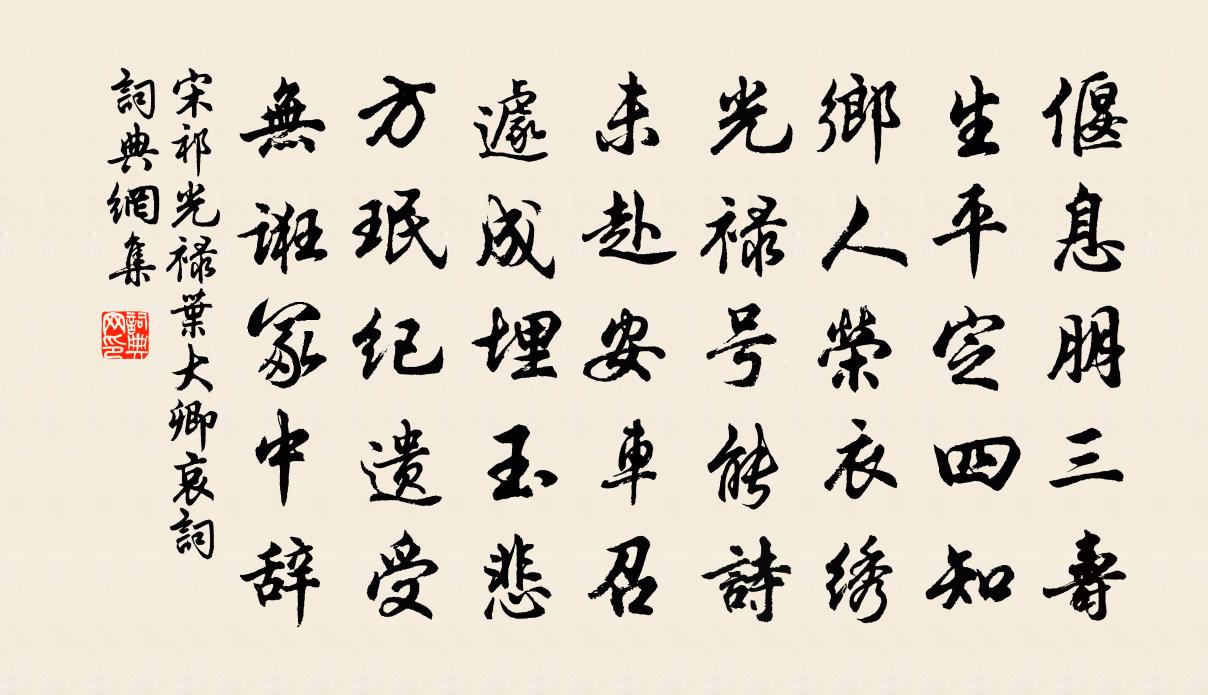 偃息朋三壽
生平定四知
鄉人榮衣绣
光禄号能詩
未赴安車召
遽成埋玉悲
方珉纪遗受
無誑冢中辞
宋祁光禄葉大卿哀詞
詞典網集
詞典网印